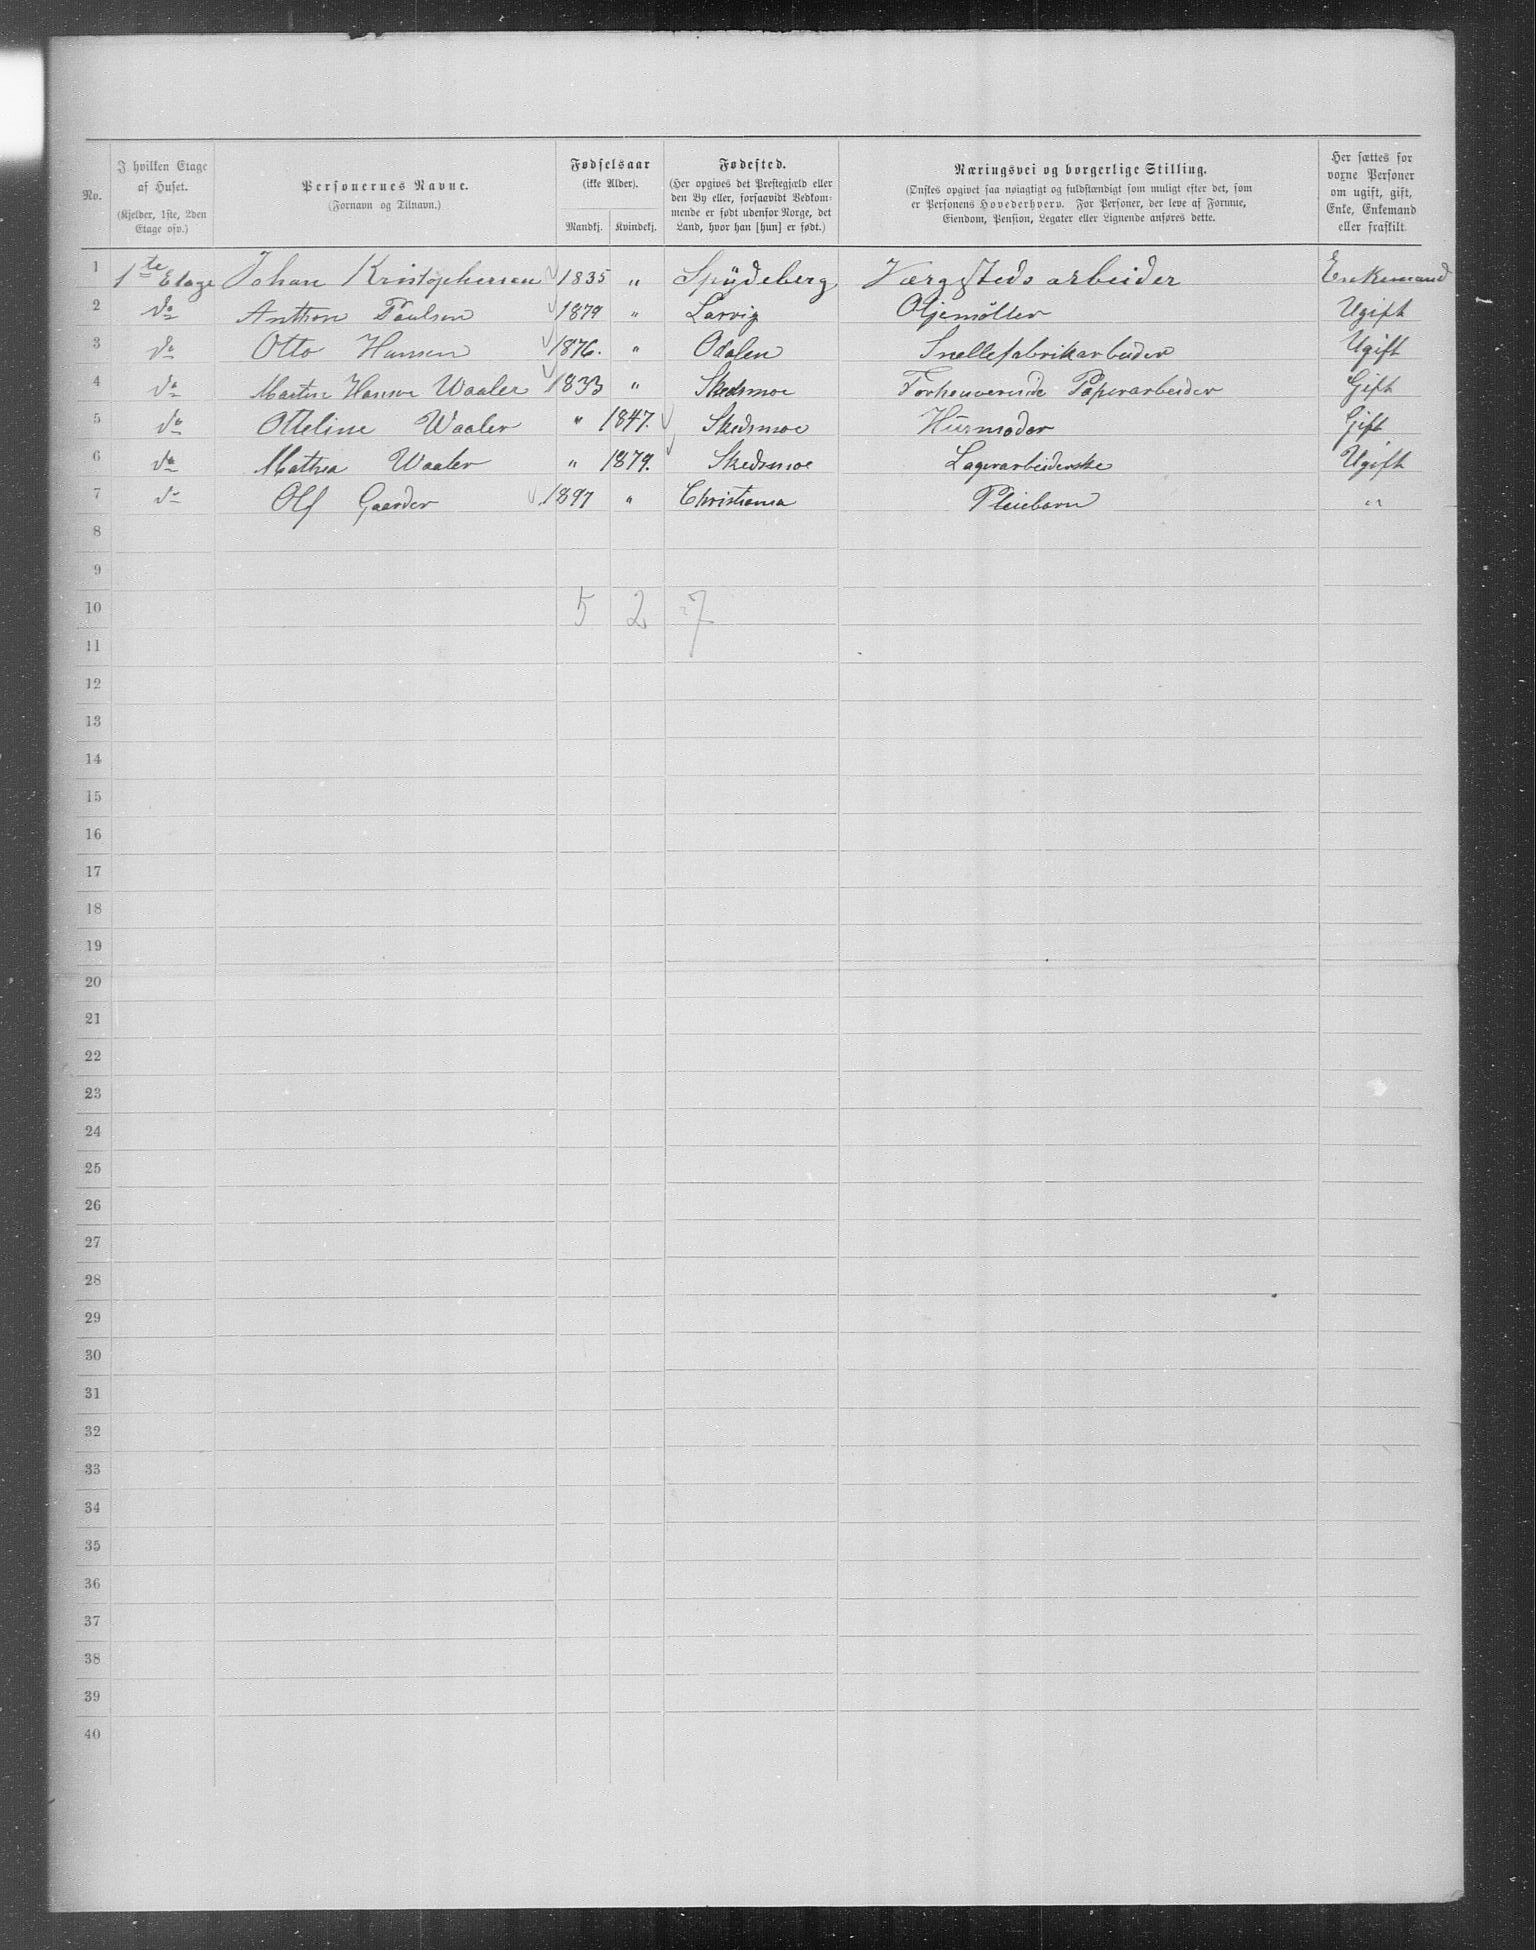 No. I hvilken Etage af Huset. (Kjelder, 1ste, 2den Etage osv.) Personernes Navne. (Fornavn og Tilnavn.) Fødselsaar (ikke Alder). Mandkj. Kvindekj. Fødested. (Her opgives det Prestegjæld eller den By eller, forsaavidt Vedkommende er født udenfor Norge, det Land, hvor han [hun] er født.) Næringsvei og borgerlige Stilling. (Ønskes opgivet saa nøiagtigt og fuldstændigt som muligt efter det, som er Personens Hovederhverv. For Personer, der leve af Formue, Eiendom, Pension, Legater eller Lignende anføres dette. Her sættes for voxne Personer om ugift, gift, Enke, Enkemand eller fraskilt.
1 1te Etage Johan Kristophersen 1835 " Spydeberg Værgsteds arbeider Enkemand
2 do Anthon Paulsen 1879 " Larvig Oljemøller Ugift
3 do Otto Hansen 1876. " Odalen Snellefabrikarbeider Ugift
4 do Martin Hansen Waaler 1833 " Skedsmoe Forhenverende Papirarbeider Gift
5 do Otteline Waaler " 1847. Skedsmoe Husmoder Gift
6 do Mathea Waaler " 1879. Skedsmoe Lagerarbeiderske Ugift
7 do Olf Gaarder 1897 " Christiania Pleiebarn "
8
9
10 5 2 7
11
12
13
14
15
16
17
18
19
20
21
22
23
24
25
26
27
28
29
30
31
32
33
34
35
36
37
38
39
40